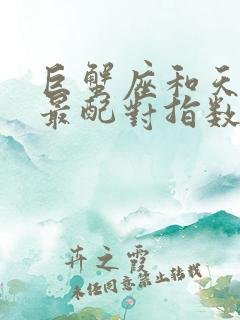 巨蟹座和天
最配對指数
卉之霞
未经同意禁止转载